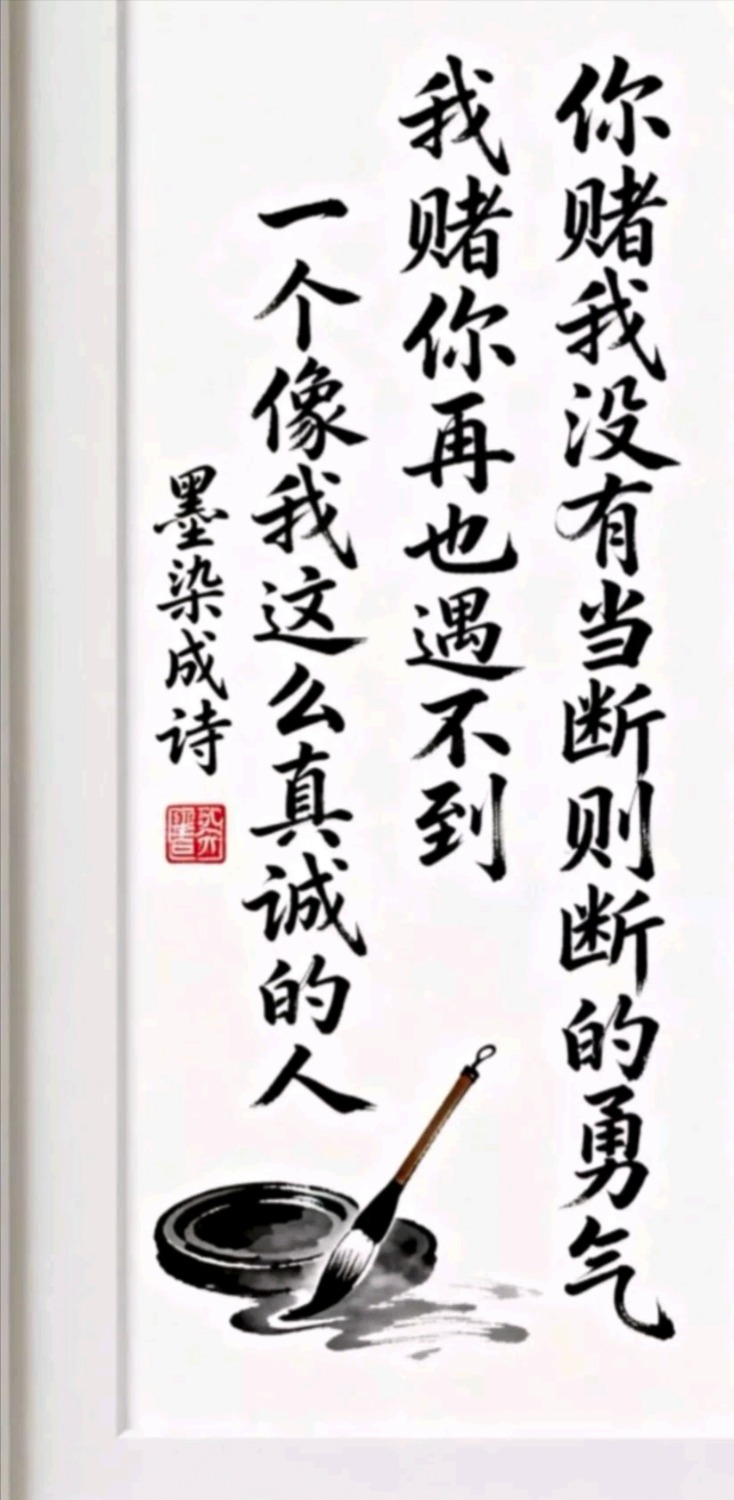 你赌我没有当断则断的勇气
我赌你再也遇不到
一个像我这么真诚的人
墨染成诗